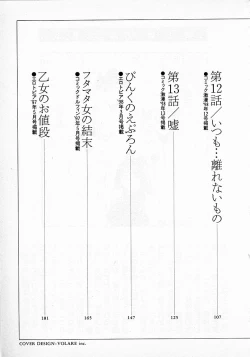 第12話／いつも…離れないもの
●コミック激漫'98年12号掲載
107
第13話／嘘
●コミック激漫'98年13号掲載
125
ぴんくのえぷろん
●エロトピア'98年1月号掲載
147
フタマタ女の結末
●コミックドルフィン'97年5月号掲載
165
乙女のお値段
●エロトピア'97年5月号掲載
181
COVER DESIGN: VOLARE inc.